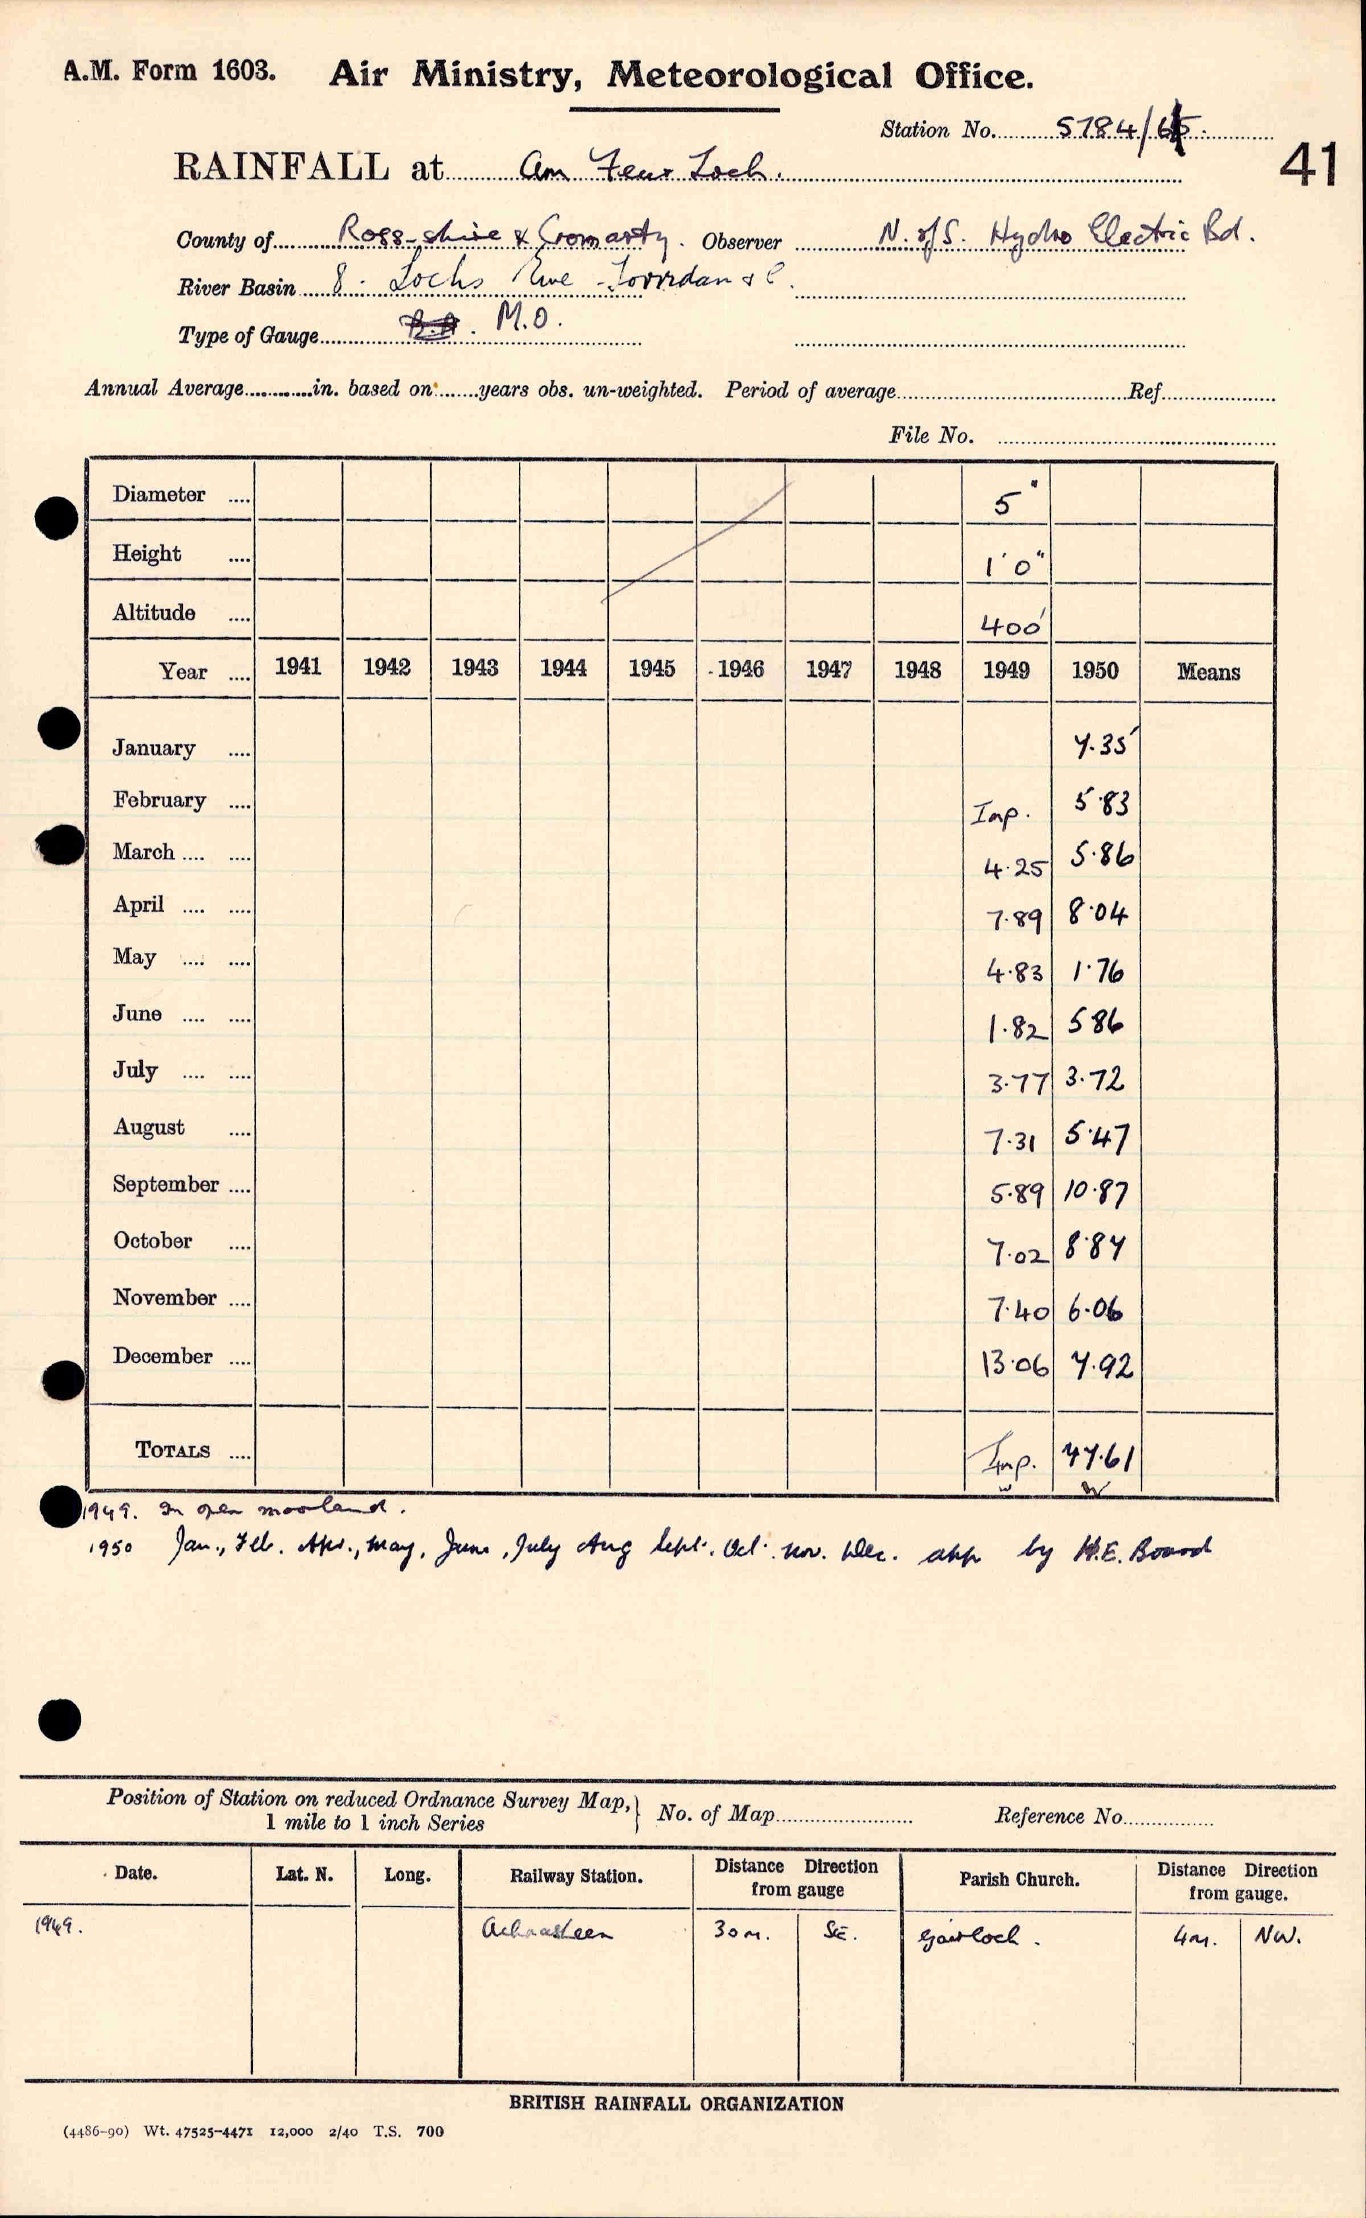 A.M. Form 1603. Air Ministry, Meteorological Office.
Station No. 5784/65.
41
RAINFALL at Am Feur Loch.
County of Ross-shire & Cromarty. Observer N. of S. Hydro Electric Bd.
River Basin 8. Lochs Ewe - Torridan & C.
Type of Gauge M.O.
Annual Average............in. based on........years obs. un-weighted. Period of average Ref.
File No.
Diameter .... 5"
Height .... 1'0"
Altitude .... 400'
Year .... 1941 1942 1943 1944 1945 1946 1947 1948 1949 1950 Means
January .... 7.35
February .... Imp. 5.83
March .... .... 4.25 5.86
April .... .... 7.89 8.04
May .... .... 4.83 1.76
June .... .... 1.82 5 86
July .... .... 3.77 3.72
August .... 7.31 5.47
September .... 5.89 10.87
October .... 7.02 8.87
November .... 7.40 6.06
December .... 13.06 7.92
TOTALS .... Imp. 77.61
1949. In open moorland.
1950 Jan., Feb. Apr., May, June, July Aug Sept. Oct. Nov. Dec. app by H.E. Board
Position of Station on reduced Ordnance Survey Map, 1 mile to 1 inch Series } No. of Map Reference No.
Date. Lat. N. Long. Railway Station. Distance Direction from gauge Parish Church. Distance Direction from gauge.
1949. Achnasheen 30 m. SE. Gairloch. 4 m. NW.
BRITISH RAINFALL ORGANIZATION
(4486-90) Wt. 47525-4471 12,000 2/40 T.S. 700